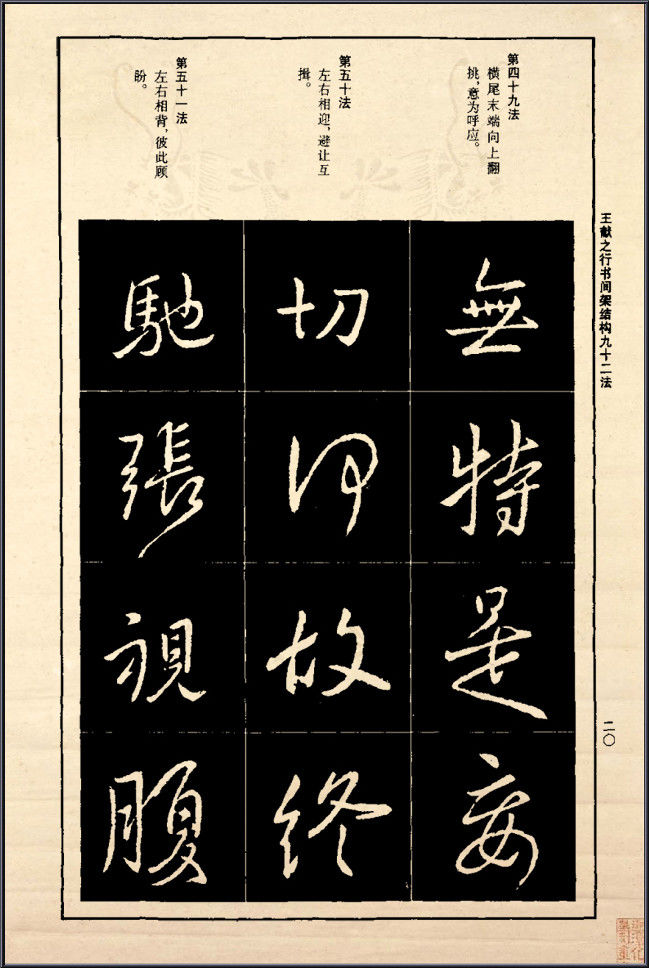 王献之行书间架结构九十二法
二〇
第四十九法
横尾末端向上翻
挑，意为呼应。
第五十法
左右相迎，避让互
揖。
第五十一法
左右相背，彼此顾
盼。
無特是
切何故終
馳張視腹